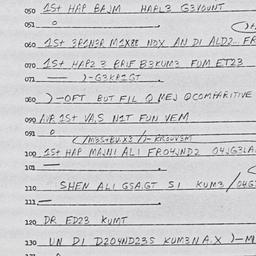 050 1St HAP BAJM HARL3 G3VOUNT
051 o
060 1St 3RON3R M1X88 NOX AN DI ALD2..
070 1St HAP2 3 BRIF B3KUM3 FUM ET23
071 — )-G3KRIGT
080 )-OFT BUT FIL Q MEJ QCOMPARITIVE
090 AIR 1St VA,S N1T FUN VEM
091 o
100 1St HAP MAJNI ALI FRO4JND2
101 —
110 SHEN ALI GSA.GT SI KUM3 /
111 —
120 DR ED23 KUMT
130 UN DI D2O4ND23S KUM3NA.X )-